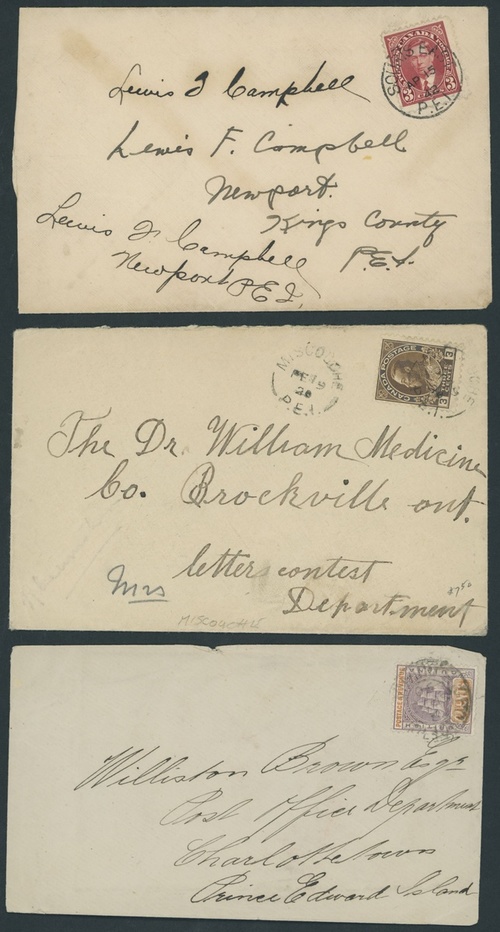 CANADA POSTAGE
3 3
AP 15
42
P.E.I.
Lewis F Campbell
Lewis F. Campbell
Newport.
Kings County
P.E.I.
Lewis F. Campbell
Newport P E I,
MISCOUCHE
FE 19
26
P.E.I.
CANADA POSTAGE
3 3
The Dr. William Medicine
Co. Brockville ont.
letter contest
Department
Mrs
$7.50
MISCOUCHE
POSTAGE & REVENUE
Williston Brown Esqr
Post Office Department
Charlottetown
Prince Edward Island